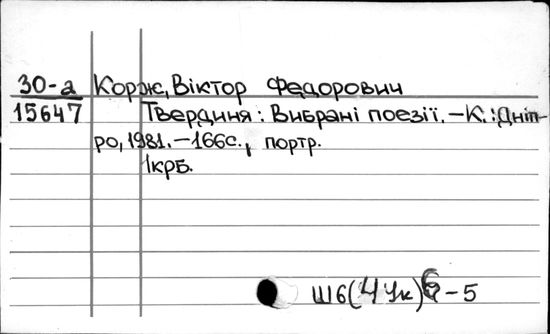 30-а Корж, Віктор Федорович
15647 Твердиня: Вибрані поезії. – К.: Дніп-
ро, 1981. – 166с., портр.
1крб.
Ш6(4Ук)6-5